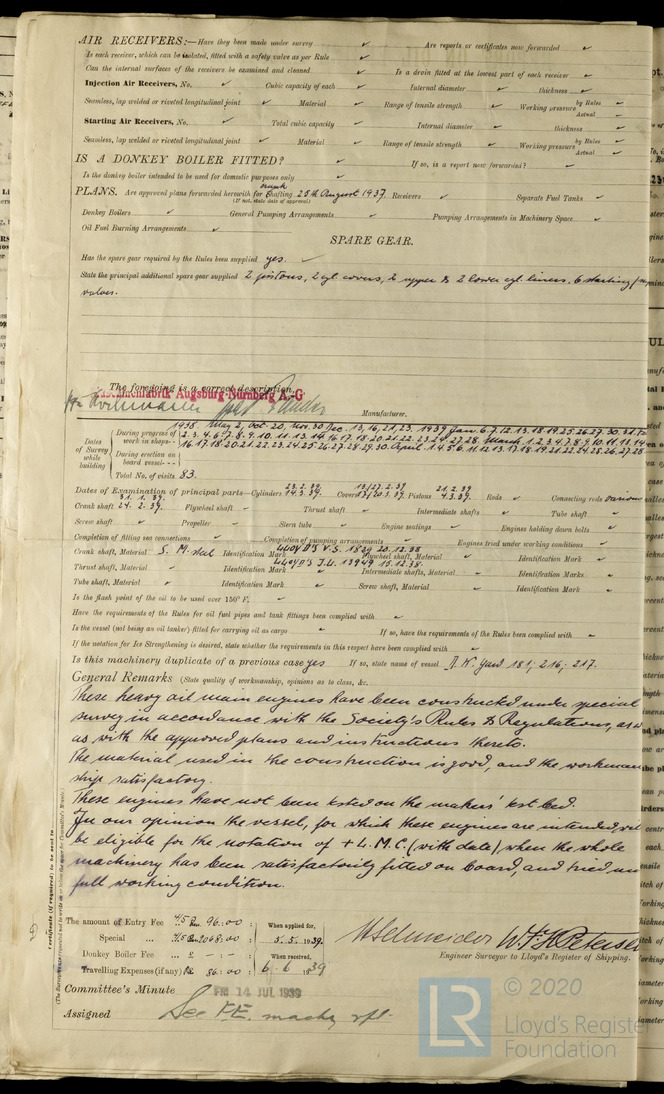 AIR RECEIVERS:—Have they been made under survey ✓ Are reports or certificates now forwarded ✓
Is each receiver, which can be isolated, fitted with a safety valve as per Rule ✓
Can the internal surfaces of the receivers be examined and cleaned ✓ Is a drain fitted at the lowest part of each receiver ✓
Injection Air Receivers, No. ✓ Cubic capacity of each ✓ Internal diameter ✓ thickness ✓
Seamless, lap welded or riveted longitudinal joint ✓ Material ✓ Range of tensile strength ✓ Working pressure by Rules ✓
Actual ✓
Starting Air Receivers, No. ✓ Total cubic capacity ✓ Internal diameter ✓ thickness ✓
Seamless, lap welded or riveted longitudinal joint ✓ Material ✓ Range of tensile strength ✓ Working pressure by Rules ✓
Actual ✓
IS A DONKEY BOILER FITTED? ✓ If so, is a report now forwarded? ✓
Is the donkey boiler intended to be used for domestic purposes only ✓
PLANS. Are approved plans forwarded herewith for crank shafting 25th August 1937. Receivers ✓ Separate Fuel Tanks ✓
(If not, state date of approval)
Donkey Boilers ✓ General Pumping Arrangements ✓ Pumping Arrangements in Machinery Space ✓
Oil Fuel Burning Arrangements ✓
SPARE GEAR.
Has the spare gear required by the Rules been supplied yes. ✓
State the principal additional spare gear supplied 2 pistons, 2 cyl covers, 2 upper & 2 lower cyl. liners, 6 starting
valves.
The foregoing is a correct description,
Maschinenfabrik Augsburg-Nürnberg A.-G
Manufacturer.
Dates of Survey while building
During progress of work in shops-- 1938 May 2, Oct. 20, Nov. 30 Dec. 13, 16, 21, 23, 1939 Jan. 6. 7. 12. 13. 18. 19. 25. 26. 27. 30. 31.
2. 3. 4. 6. 7. 8. 9. 10. 11. 13. 14. 16. 17. 18. 20. 21. 22. 23. 24. 27. 28. March 1. 2. 3. 4. 7. 8. 9. 10. 11. 13. 14
During erection on board vessel--- 16. 17. 18. 20. 21. 22. 23. 24. 25. 26. 27. 28. 29. 30. April 1. 4. 5. 6. 11. 12. 13. 17. 18. 19. 21. 22. 24. 25. 26. 27. 28.
Total No. of visits 83.
Dates of Examination of principal parts—Cylinders 23.2.39. 14.3.39. Covers 13/27.2.39 13/20.3.39. Pistons 21.2.39 4.3.39. Rods ✓ Connecting rods various
Crank shaft 31.1.39. 24.2.39. Flywheel shaft ✓ Thrust shaft ✓ Intermediate shafts ✓ Tube shaft ✓
Screw shaft ✓ Propeller ✓ Stern tube ✓ Engine seatings ✓ Engines holding down bolts ✓
Completion of fitting sea connections ✓ Completion of pumping arrangements ✓ Engines tried under working conditions ✓
Crank shaft, Material S. M. steel Identification Mark LLOYD'S V.S. 1829 20.12.38 Flywheel shaft, Material ✓ Identification Mark ✓
Thrust shaft, Material ✓ Identification Mark LLOYD'S J.L. 13949 15.12.38. Intermediate shafts, Material ✓ Identification Marks ✓
Tube shaft, Material ✓ Identification Mark ✓ Screw shaft, Material ✓ Identification Mark ✓
Is the flash point of the oil to be used over 150° F. ✓
Have the requirements of the Rules for oil fuel pipes and tank fittings been complied with ✓
Is the vessel (not being an oil tanker) fitted for carrying oil as cargo ✓ If so, have the requirements of the Rules been complied with ✓
If the notation for Ice Strengthening is desired, state whether the requirements in this respect have been complied with ✓
Is this machinery duplicate of a previous case yes If so, state name of vessel Yard 181; 216; 217.
General Remarks (State quality of workmanship, opinions as to class, &c.
These heavy oil main engines have been constructed under special
survey in accordance with the Society's Rules & Regulations, as
as with the approved plans and instructions thereto.
The material used in the construction is good, and the workman
ship satisfactory.
These engines have not been tested on the makers' test bed.
In our opinion the vessel, for which these engines are intended, will
be eligible for the notation of + L.M.C. (with date), when the whole
machinery has been satisfactorily fitted on board, and tried
full working condition.
Certificate (if required) to be sent to
(The Surveyors are requested not to write on or below the space for Committee's Minute.)
The amount of Entry Fee 96:00 When applied for,
Special ... 2068:00 5.5.1939.
Donkey Boiler Fee ... £ - : - : When received,
Travelling Expenses (if any) 86:00 6.6 1939
H Schneider W.F.K. Petersen
Engineer Surveyor to Lloyd's Register of Shipping.
Committee's Minute FRI 14 JUL 1939
Assigned See F.E. machy rpt.
LR © 2020
Lloyd's Register
Foundation